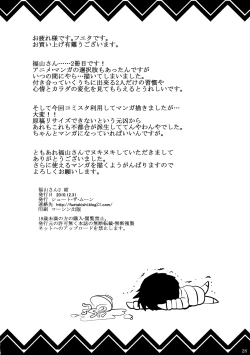 お疲れ様です。フニタです。
お買い上げ有難うございます。
福山さん……2冊目です！
アニメ・マンガの選択肢もあったんですが
いつの間にやら…描いてしまいました。
付き合っていくうちに出来る2人だけの習慣や
心境とカラダの変化を見てもらえるとうれしいです。
そして今回コミスタ利用してマンガ描きましたが…
大変！！
原稿リサイズできないという元凶から
あれもこれも不都合が派生しててんやわんやでした。
ちゃんとマンガになっていればいいですが…
ともあれ福山さんでヌキヌキしていただきまして
ありがとうございました。
さらに使えるマンガを描くようがんばりますので
よろしくお願いします。
福山さん2 終
発行日 2010.12.31
発行 ショート・ザ・ムーン
印刷 コーシン出版
18歳未満の方の購入・閲覧禁止。
発行元の許可無く本誌の無断転載・無断複製
ネットへのアップロードを禁止します。